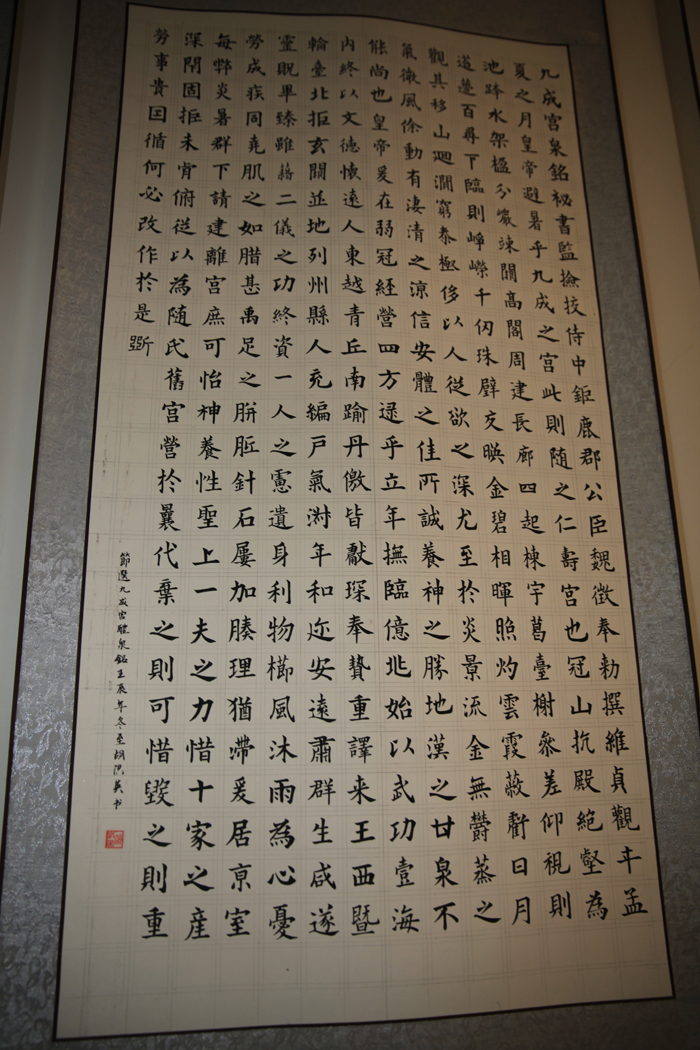 九成宮泉銘祕書監撿挍侍中鉅鹿郡公臣魏徵奉勅撰維貞觀年孟
夏之月皇帝避暑乎九成之宮此則随之仁壽宮也冠山抗殿絶壑為
池跨水架楹分巖竦闕高閣周建長廊四起棟宇葛臺榭參差仰視則
迢遰百尋下臨則崢嶸千仞珠璧交暎金碧相暉照灼雲霞蔽虧日月
觀其移山迴澗窮泰極侈以人從欲之深尤至於炎景流金無鬱蒸之
氣微風徐動有凄清之涼信安體之佳所誠養神之勝地漢之甘泉不
能尚也皇帝爰在弱冠經營四方逯乎立年撫臨億兆始以武功壹海
内終以文德懷遠人東越青丘南踰丹徼皆獻琛奉贄重譯来王西暨
輪臺北拒玄闕並地列州縣人充編戶氣淑年和迩安遠肅群生咸遂
靈貺畢臻雖藉二儀之功終資一人之慮遺身利物櫛風沐雨為心憂
勞成疾同堯肌之如腊甚禹足之胼胝針石屢加腠理猶滯爰居京室
每弊炎暑群下請建離宮庶可怡神養性聖上一夫之力惜十家之産
深閉固拒未肯俯從以為随氏舊宮營於曩代棄之則可惜毀之則重
勞事貴因循何必改作於是斲
節選九成宮醴泉銘壬辰年冬至胡洪英书